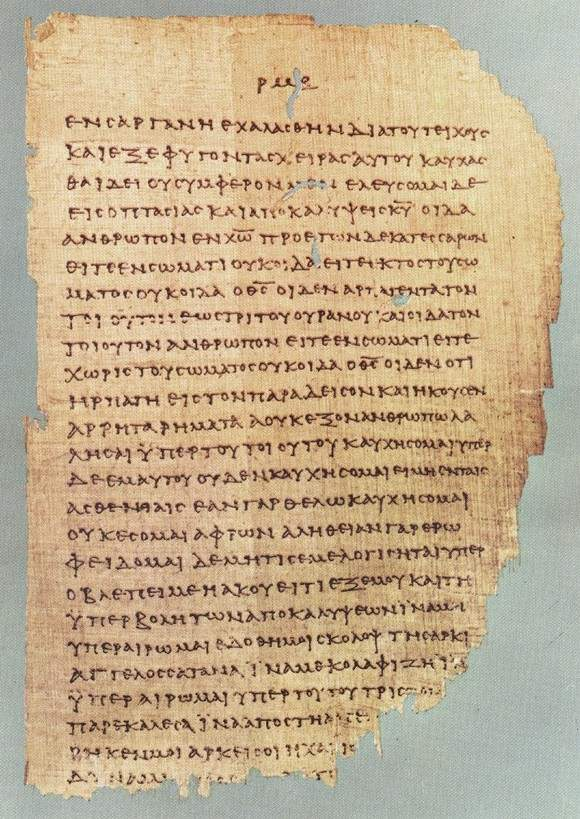 ρμε
ΕΝϹΑΡΓΑΝΗ ΕΧΑΛΑϹΘΗΝ ΔΙΑΤΟΥΤΕΙΧΟΥϹ
ΚΑΙΕΞΕΦΥΓΟΝΤΑϹΧΕΙΡΑϹΑΥΤΟΥ ΚΑΥΧΑϹ
ΘΑΙΔΕΙ ΟΥϹΥΜΦΕΡΟΝ ΕΛΕΥϹΟΜΑΙΔΕ
ΕΙϹΟΠΤΑϹΙΑϹ ΚΑΙΑΠΟΚΑΛΥΨΕΙϹΚ̅Υ̅ ΟΙΔΑ
ΑΝΘΡΩΠΟΝ ΕΝΧ̅Ω̅ ΠΡΟΕΤΩΝΔΕΚΑΤΕϹϹΑΡΩΝ
ΕΙΤΕΕΝϹΩΜΑΤΙΟΥΚΟΙΔΑ ΕΙΤΕΙΚΤΟϹΤΟΥϹΩ
ΜΑΤΟϹΟΥΚΟΙΔΑ ΟΘ̅Ϲ̅ ΟΙΔΕΝ ΑΡΠΑΓΕΝΤΑΤΟΝ
ΤΟΙΟΥΤΟΝΕΩϹΤΡΙΤΟΥΟΥΡΑΝΟΥ ΚΑΙΟΙΔΑΤΟΝ
ΤΟΙΟΥΤΟΝ ΑΝΘΡΩΠΟΝ ΕΙΤΕΕΝϹΩΜΑΤΙ ΕΙΤΕ
ΧΩΡΙϹΤΟΥϹΩΜΑΤΟϹΟΥΚΟΙΔΑ ΟΘ̅Ϲ̅ ΟΙΔΕΝ ΟΤΙ
ΗΡΠΑΓΗ ΕΙϹΤΟΝΠΑΡΑΔΕΙϹΟΝΚΑΙΗΚΟΥϹΕΝ
ΑΡΡΗΤΑΡΗΜΑΤΑ ΑΟΥΚΕΞΟΝΑΝΘΡΩΠΩΛΑ
ΛΗϹΑΙ ΫΠΕΡΤΟΥΤΟΙΟΥΤΟΥ ΚΑΥΧΗϹΟΜΑΙΥΠΕΡ
ΔΕΕΜΑΥΤΟΥ ΟΥΔΕΝΚΑΥΧΗϹΟΜΑΙΕΙΜΗΕΝΤΑΙϹ
ΑϹΘΕΝΕΙΑΙϹ ΕΑΝΓΑΡΘΕΛΩΚΑΥΧΗϹΟΜΑΙ
ΟΥΚΕϹΟΜΑΙΑΦΡΩΝ ΑΛΗΘΕΙΑΝΓΑΡΕΡΩ
ΦΕΙΔΟΜΑΙ ΔΕΜΗΤΙϹΕΜΕΛΟΓΙϹΗΤΑΙΥΠΕΡ
ΟΒΛΕΠΕΙΜΕΗΑΚΟΥΕΙΤΙΕΞΕΜΟΥ ΚΑΙΤΗ
ΫΠΕΡΒΟΛΗΤΩΝΑΠΟΚΑΛΥΨΕΩΝΪΝΑΜΗ
ΥΠΕΡΑΙΡΩΜΑΙΕΔΟΘΗΜΟΙϹΚΟΛΟΨ ΤΗϹΑΡΚΙ
ΑΓΓΕΛΟϹϹΑΤΑΝΑ ΪΝΑΜΕΚΟΛΑΦΙΖΗΪΝΑ
ΫΠΕΡΑΙΡΩΜΑΙΥΠΕΡΤΟΥΤΟΥΤΡΙϹ
ΠΑΡΕΚΑΛΕϹΑΪΝΑΑΠΟϹΤΗΑΠ
ΡΗΚΕΝΜΟΙΑΡΚΕΙϹΟΙΗΧΑΡΙϹ
ΔΥΝΑΜΙϹ